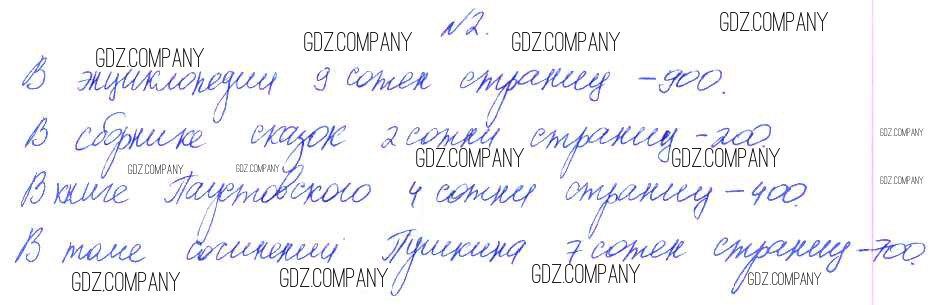 №2.
GDZ.COMPANY GDZ.COMPANY GDZ.COMPANY GDZ.COMPANY
В энциклопедии 9 сотен страниц – 900.
В сборнике сказок 2 сотни страниц – 200.
GDZ.COMPANY
GDZ.COMPANY GDZ.COMPANY GDZ.COMPANY GDZ.COMPANY
В книге Паустовского 4 сотни страниц – 400.
GDZ.COMPANY
В томе сочинений Пушкина 7 сотен страниц – 700.
GDZ.COMPANY GDZ.COMPANY GDZ.COMPANY GDZ.COMPANY